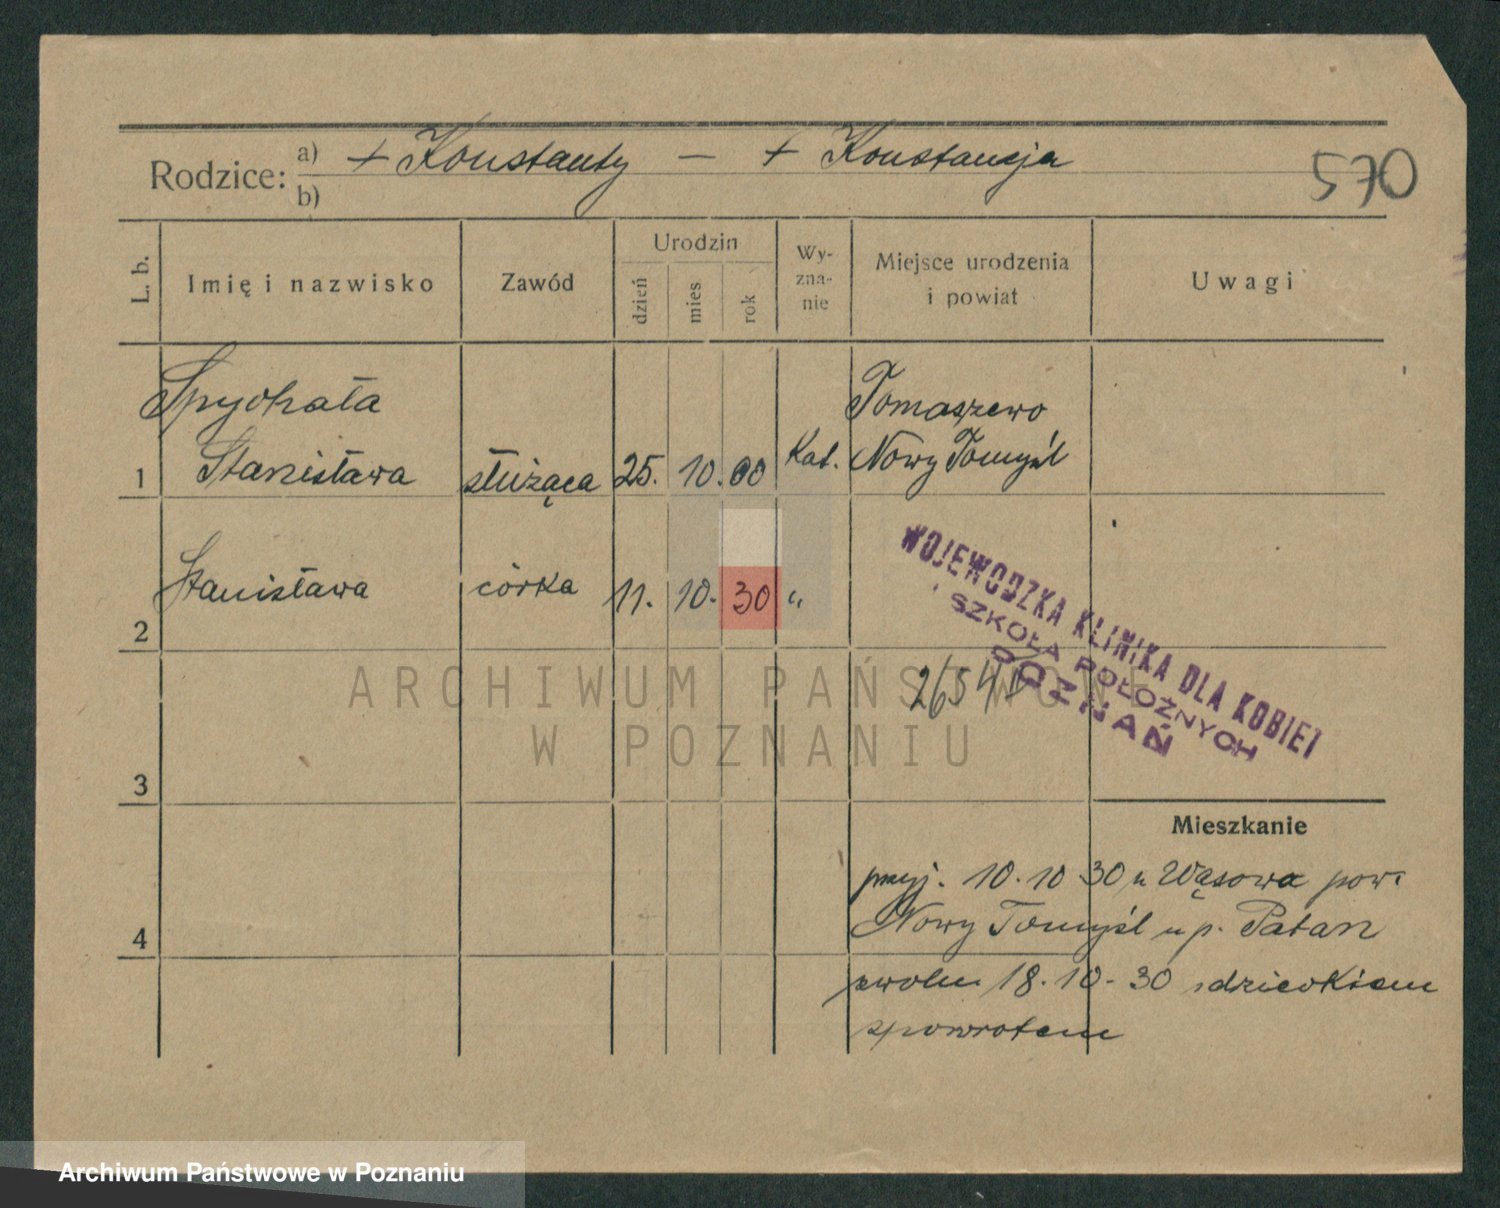 Rodzice: a) + Konstanty — + Konstancja
b)
570
L. b.
Imię i nazwisko
Zawód
Urodzin
dzień
mies
rok
Wy-
zna-
nie
Miejsce urodzenia
i powiat
Uwagi
Spychała
Tomaszewo
1 Stanisława służąca 25. 10. 00 Kat. Nowy Tomyśl
2 Stanisława córka 11. 10. 30 „
WOJEWODZKA KLINIKA DLA KOBIET
i SZKOŁA POŁOŻNYCH
POZNAŃ
ARCHIWUM PAŃSTWOWE
W POZNANIU
3
Mieszkanie
przyj. 10.10 30 z Wąsowa pow.
4 Nowy Tomyśl u p. Patan
zwoln. 18.10-30 z dzieckiem
zpowrotem
Archiwum Państwowe w Poznaniu